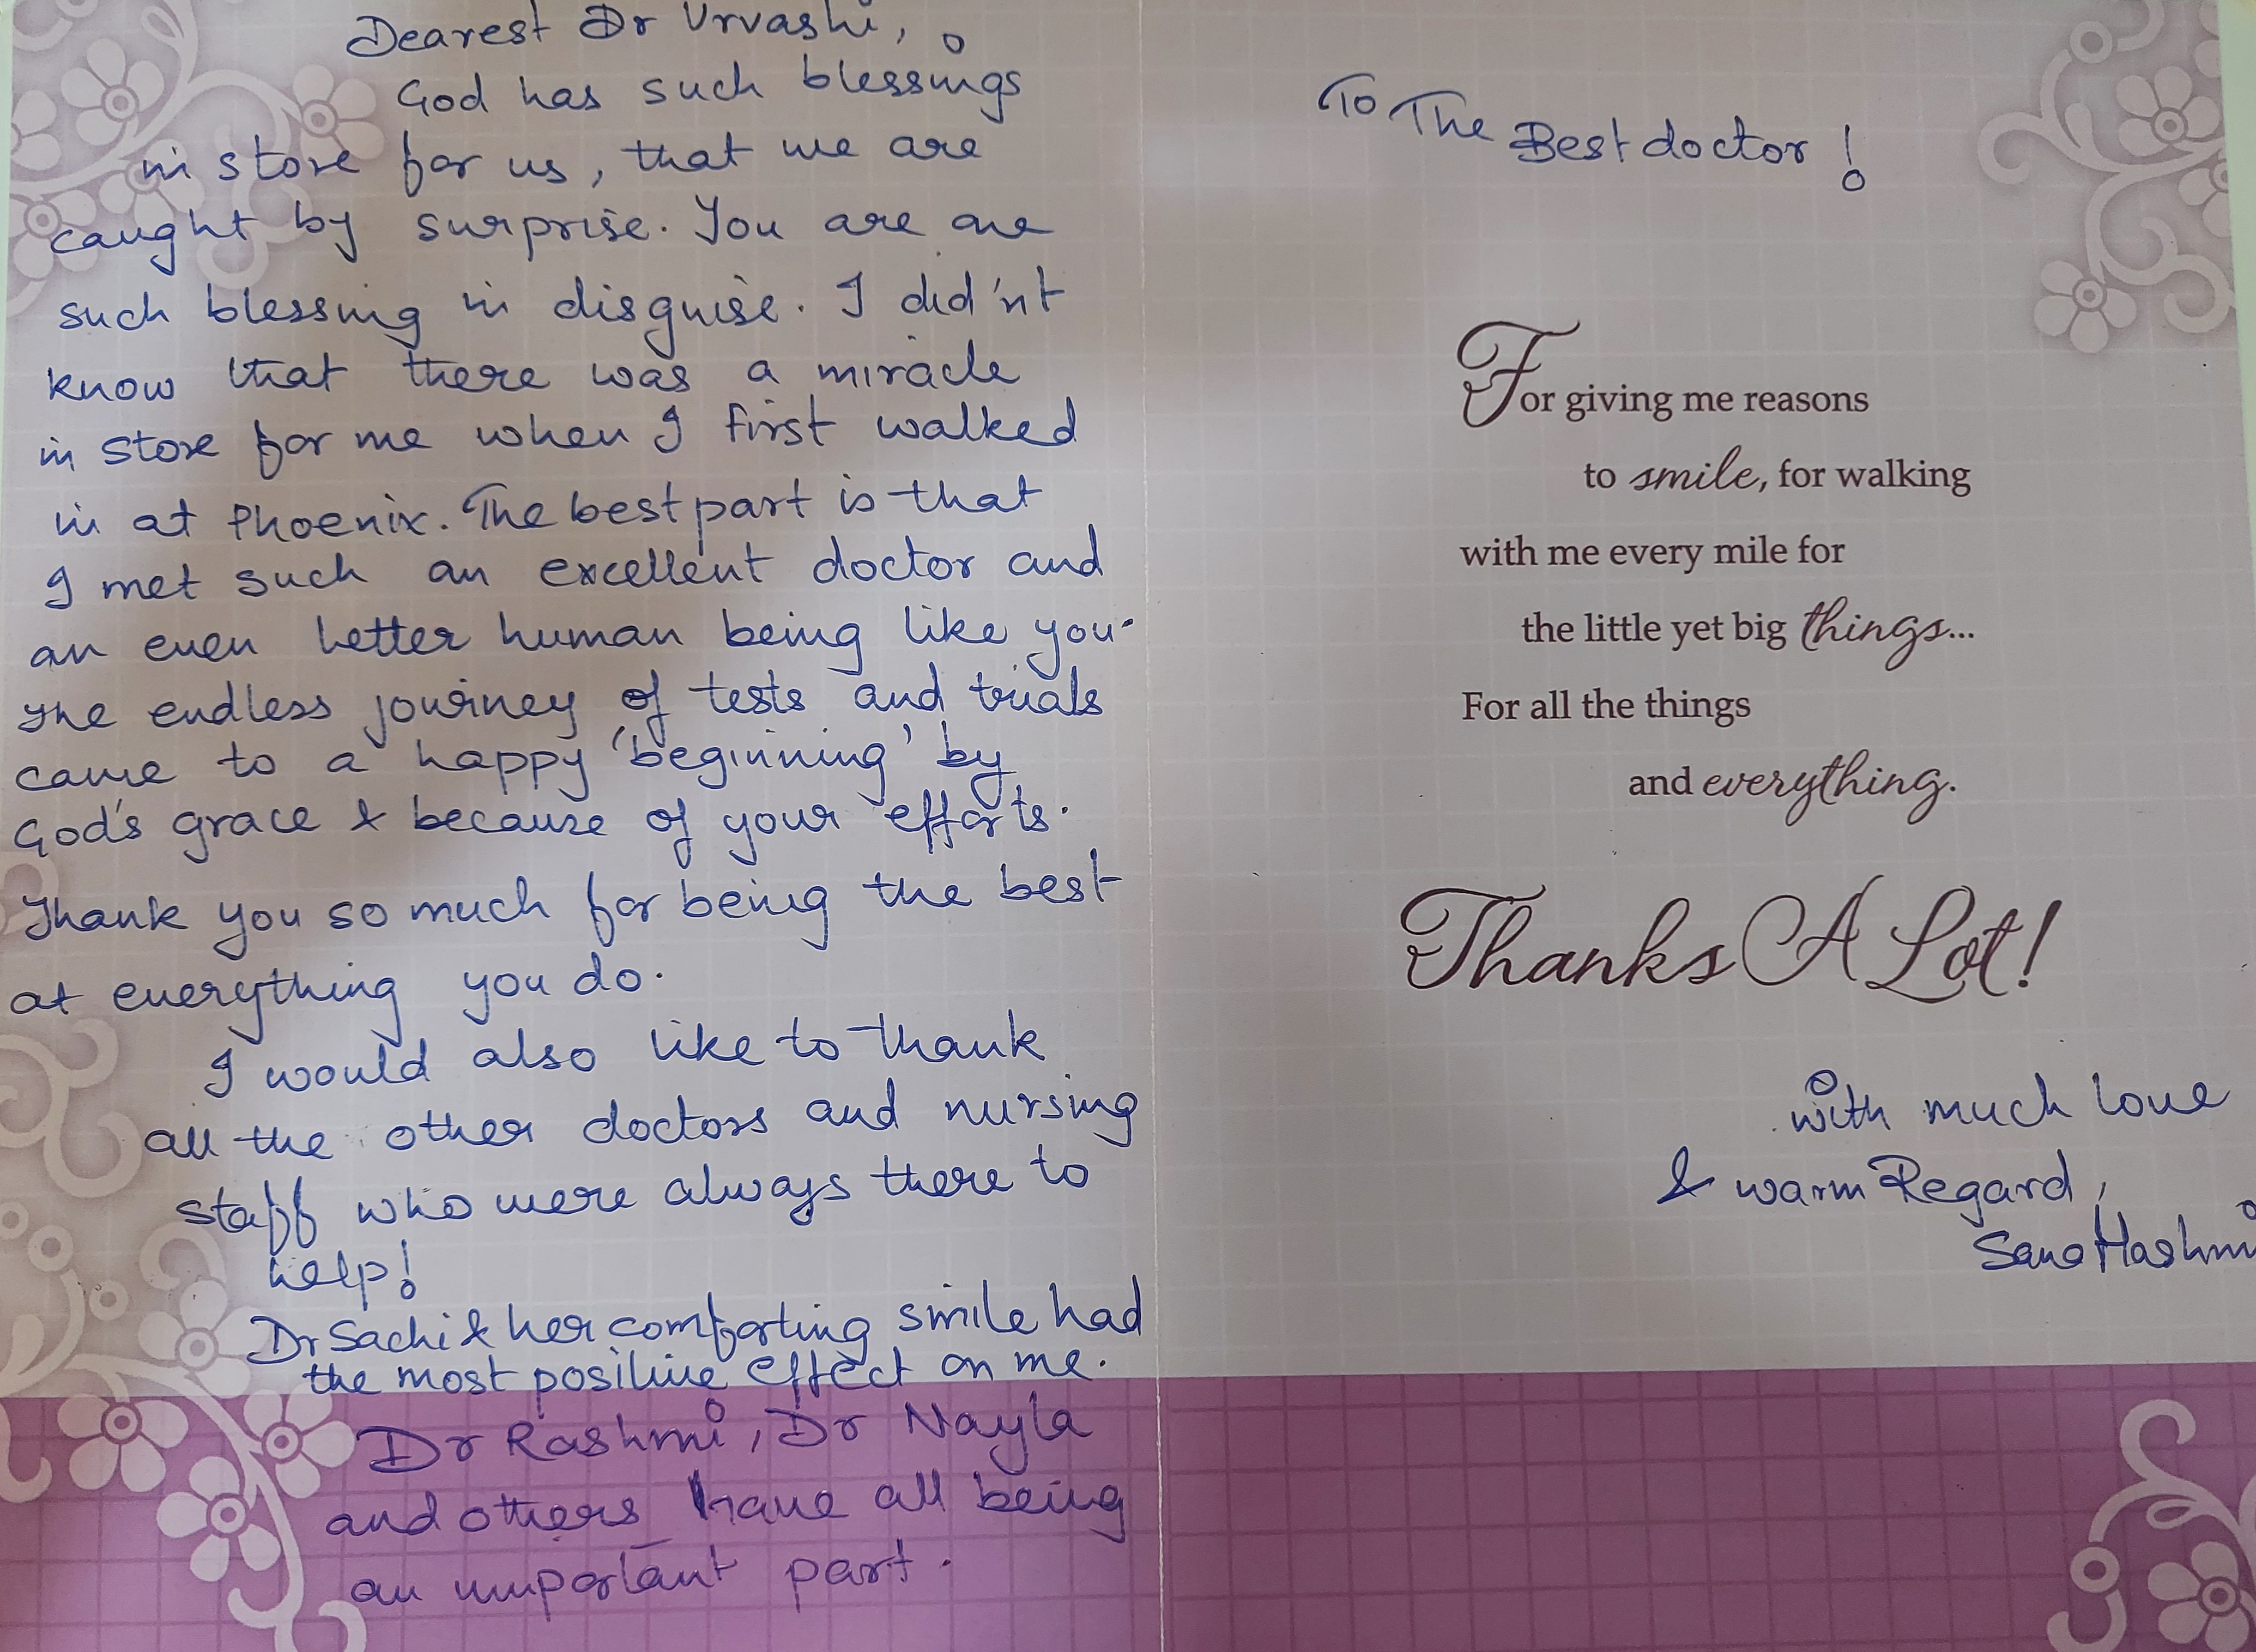 Dearest Dr Urvashi,
God has such blessings
in store for us, that we are
caught by surprise. You are one
such blessing in disguise. I did'nt
know that there was a miracle
in store for me when I first walked
in at Phoenix. The best part is that
I met such an excellent doctor and
an even better human being like you.
The endless journey of tests and trials
came to a happy 'beginning' by
God's grace & because of your efforts.
Thank you so much for being the best
at everything you do.
I would also like to thank
all the other doctors and nursing
staff who were always there to
help!
Dr Sachi & her comforting smile had
the most positive effect on me.
Dr Rashmi, Dr Nayla
and others have all being
an important part.
To The Best doctor!
For giving me reasons
to smile, for walking
with me every mile for
the little yet big things...
For all the things
and everything.
Thanks A Lot!
with much love
& warm Regard,
Sana Hashmi